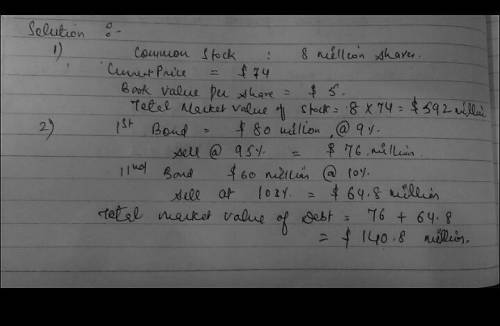 Solution :-
1) Common Stock : 8 million shares.
Current Price = $74
Book value per share = $5.
Total Market value of stock = 8 X 74 = $592 million
2) 1st Bond = $80 million, @ 9%
Sell @ 95% = $76 million
11nd Bond $60 million @ 10%
Sell at 108% = $64.8 million
Total market value of Debt = 76 + 64.8
= $140.8 million.